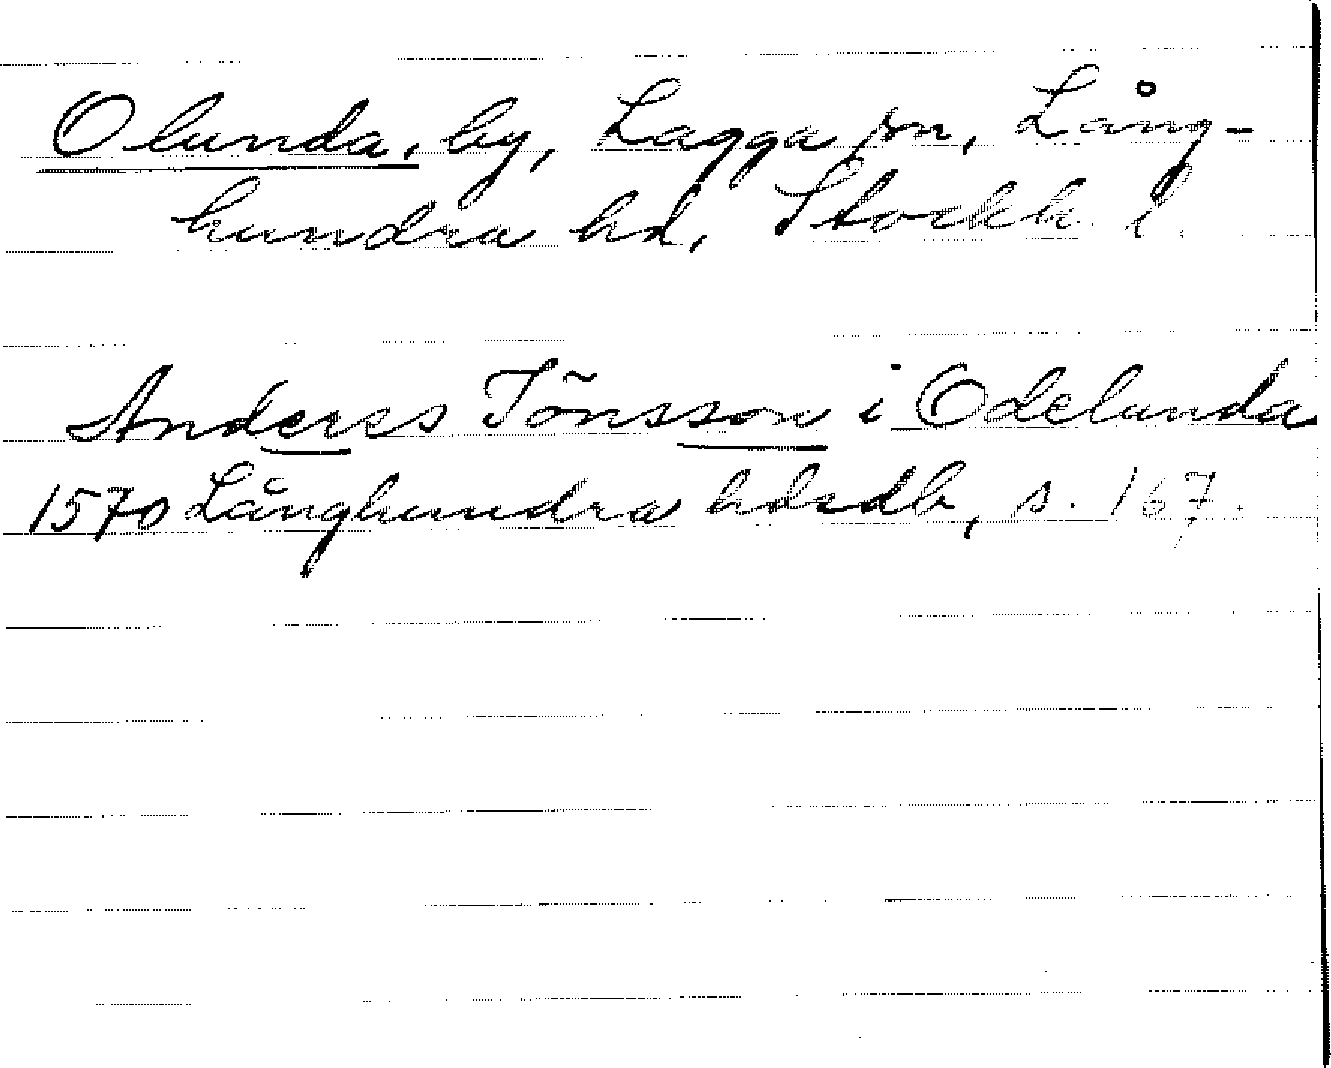 Olunda, by, Lagga sn, Lång-
hundra hd, Stockh. l.
Anderss Jönsson i Odelunda
1570 Långhundra hdrdb, s. 167.